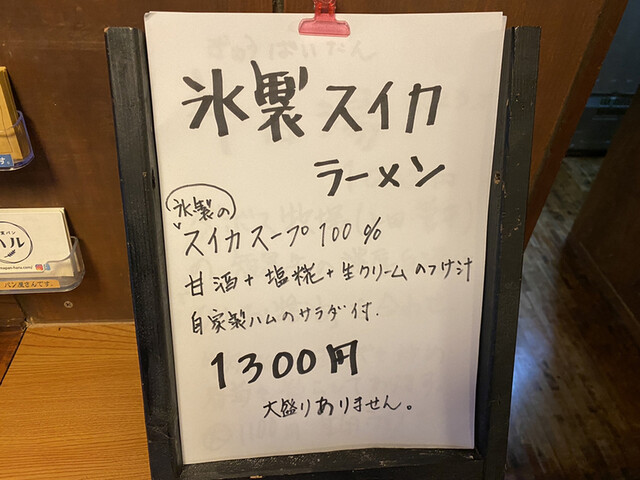 氷製スイカ
ラーメン
氷製の
スイカスープ100%
甘酒+塩糀+生クリームのつけ汁
自家製ハムのサラダ付.
1300円
大盛りありません。
パン
ハル
パン屋さんです。
す。